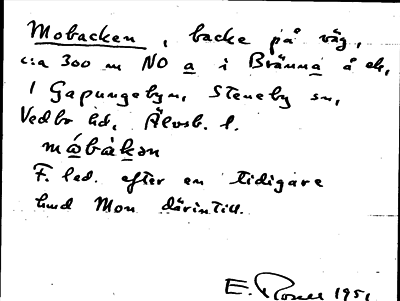 Mobacken, backe på väg,
c:a 300 m NO a i Bränna å ek,
1 Gapungebyn, Steneby sn,
Vedbo hd, Älvsb. l.
mábàkən
F. led. efter en tidigare
lund Mon därintill.
E. 1951